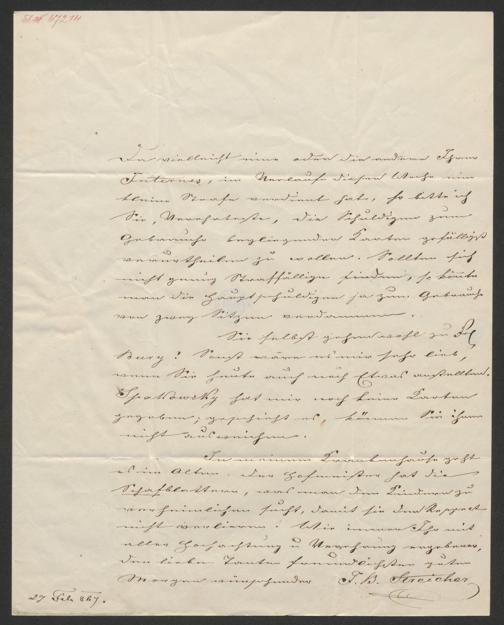 Da vielleicht eine oder die andere Ihrer
Internes, im Verlaufe dieser Woche eine
kleine Strafe verdient hat, so bitte ich
Sie, Verehrteste, die Schuldigen zum
Gebrauche beyliegender Karten gefälligst
verurtheilen zu wollen. Sollten sich
nicht genug Straffällige finden, so könnte
man die Hauptschuldigen ja zum Gebrauch
von zwey Sitzen verdammen.
Sie selbst gehen wohl zu
Burg! Sonst wäre es mir sehr lieb,
wenn Sie heute auch noch Etwas anstellten.
hat mir noch keine Karten
gegeben, geschieht es, können Sie ihnen
nicht ausweichen.
In meinem Krankenhause geht
es im Alten. Der Hofmeister hat die
Schafblattern, was man den Kindern zu
verheimlichen sucht, damit sie den Respect
nicht verlieren! Wie immer Ihr mit
aller Hochachtung u Verehrung ergebener,
den lieben Tanten freundlichsten guten
Morgen wünschender J. B. Streicher
27 Feb. 867.